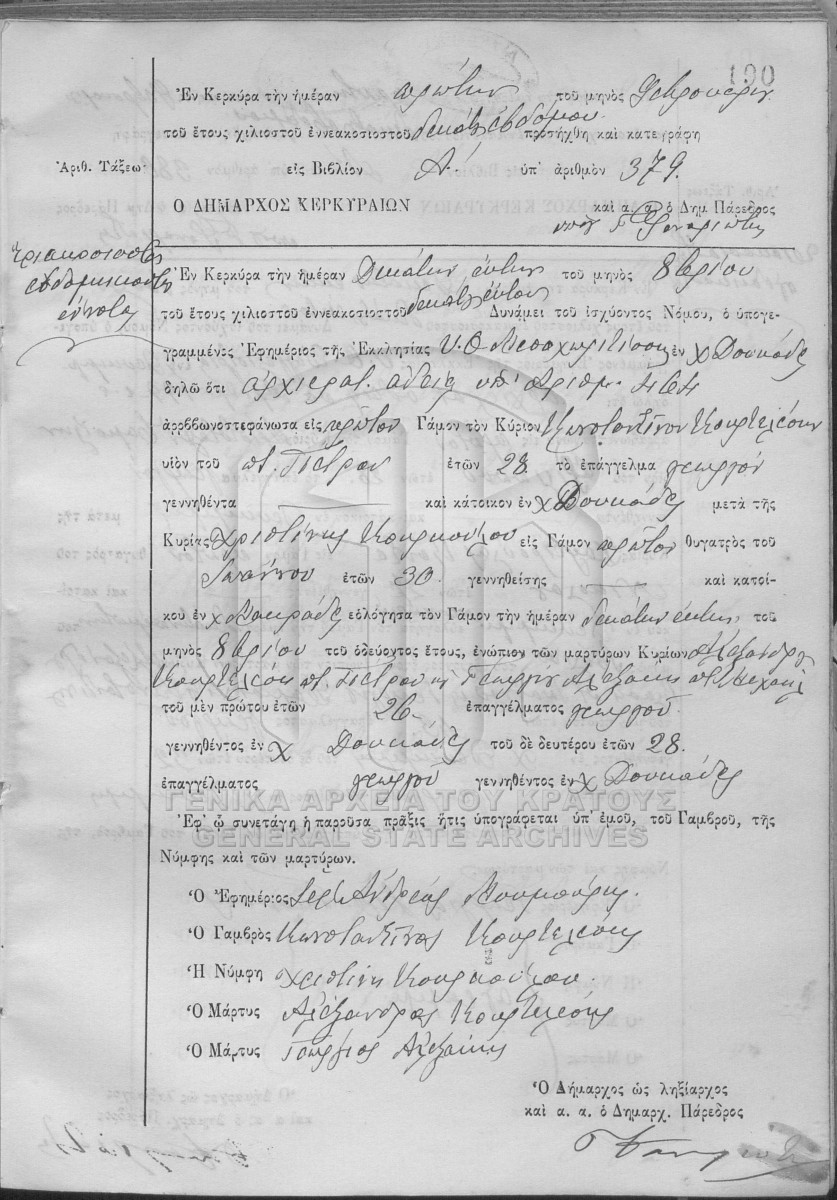 190
Ἐν Κερκύρᾳ τὴν ἡμέραν πρώτην τοῦ μηνὸς Φεβρουαρίου
τοῦ ἔτους χιλιοστοῦ ἐννεακοσιοστοῦ δεκάτου ἑβδόμου προσήχθη καὶ κατεγράφη
Ἀριθ. Τάξεω εἰς Βιβλίον Α' ὑπ' ἀριθμὸν 379.
Ο ΔΗΜΑΡΧΟΣ ΚΕΡΚΥΡΑΙΩΝ καὶ α. α. ὁ Δημ Πάρεδρος
Τριακοσιοστὸς
ἑβδομηκοστὸς
ἔννατος
Ἐν Κερκύρᾳ τὴν ἡμέραν Δεκάτην ἕκτην τοῦ μηνὸς 8βρίου
τοῦ ἔτους χιλιοστοῦ ἐννεακοσιοστοῦ δεκάτου ἕκτου Δυνάμει τοῦ ἰσχύοντος Νόμου, ὁ ὑπογε-
γραμμένος Ἐφημέριος τῆς Ἐκκλησίας Υ. Θ. ἐν χ Δουκάδες
δηλῶ ὅτι ἀρχιερατ. ἀδείᾳ ὑπ' ἀριθμ.
ἀρραβωνοστεφάνωσα εἰς πρῶτον Γάμον τὸν Κύριον Κωνσταντῖνον Κουρτελέσην
υἱὸν τοῦ π. Πέτρου ἐτῶν 28. τὸ ἐπάγγελμα γεωργὸν
γεννηθέντα καὶ κάτοικον ἐν χ Δουκάδες μετὰ τῆς
Κυρίας Χριστίνης εἰς Γάμον πρῶτον θυγατρὸς τοῦ
Ἰωάννου ἐτῶν 30. γεννηθείσης καὶ κατοί-
κου ἐν χ Μακράδες εὐλόγησα τὸν Γάμον τὴν ἡμέραν δεκάτην ἕκτην, τοῦ
μηνὸς 8βρίου τοῦ ὁδεύοντος ἔτους, ἐνώπιον τῶν μαρτύρων Κυρίων Ἀλεξάνδρου
Κουρτελέση π. Πέτρου κ Γεωργίου Ἀλεξάκη
τοῦ μὲν πρώτου ἐτῶν 26 ἐπαγγέλματος γεωργοῦ
γεννηθέντος ἐν χ Δουκάδες τοῦ δὲ δευτέρου ἐτῶν 28.
ἐπαγγέλματος γεωργοῦ γεννηθέντος ἐν χ Δουκάδες
ΓΕΝΙΚΑ ΑΡΧΕΙΑ ΤΟΥ ΚΡΑΤΟΥΣ
Ἐφ' ᾧ συνετάγη ἡ παροῦσα πρᾶξις ἥτις ὑπογράφεται ὑπ' ἐμοῦ, τοῦ Γαμβροῦ, τῆς
GENERAL STATE ARCHIVES
Νύμφης καὶ τῶν μαρτύρων.
Ὁ Ἐφημέριος Ἱερ. Ἀνδρέας
Ὁ Γαμβρὸς Κωνσταντῖνος Κουρτελέσης
Ἡ Νύμφη Χριστίνη
Ὁ Μάρτυς Ἀλέξανδρος Κουρτελέσης
Ὁ Μάρτυς Γεώργιος Ἀλεξάκης
Ὁ Δήμαρχος ὡς ληξίαρχος
καὶ α. α. ὁ Δημαρχ. Πάρεδρος